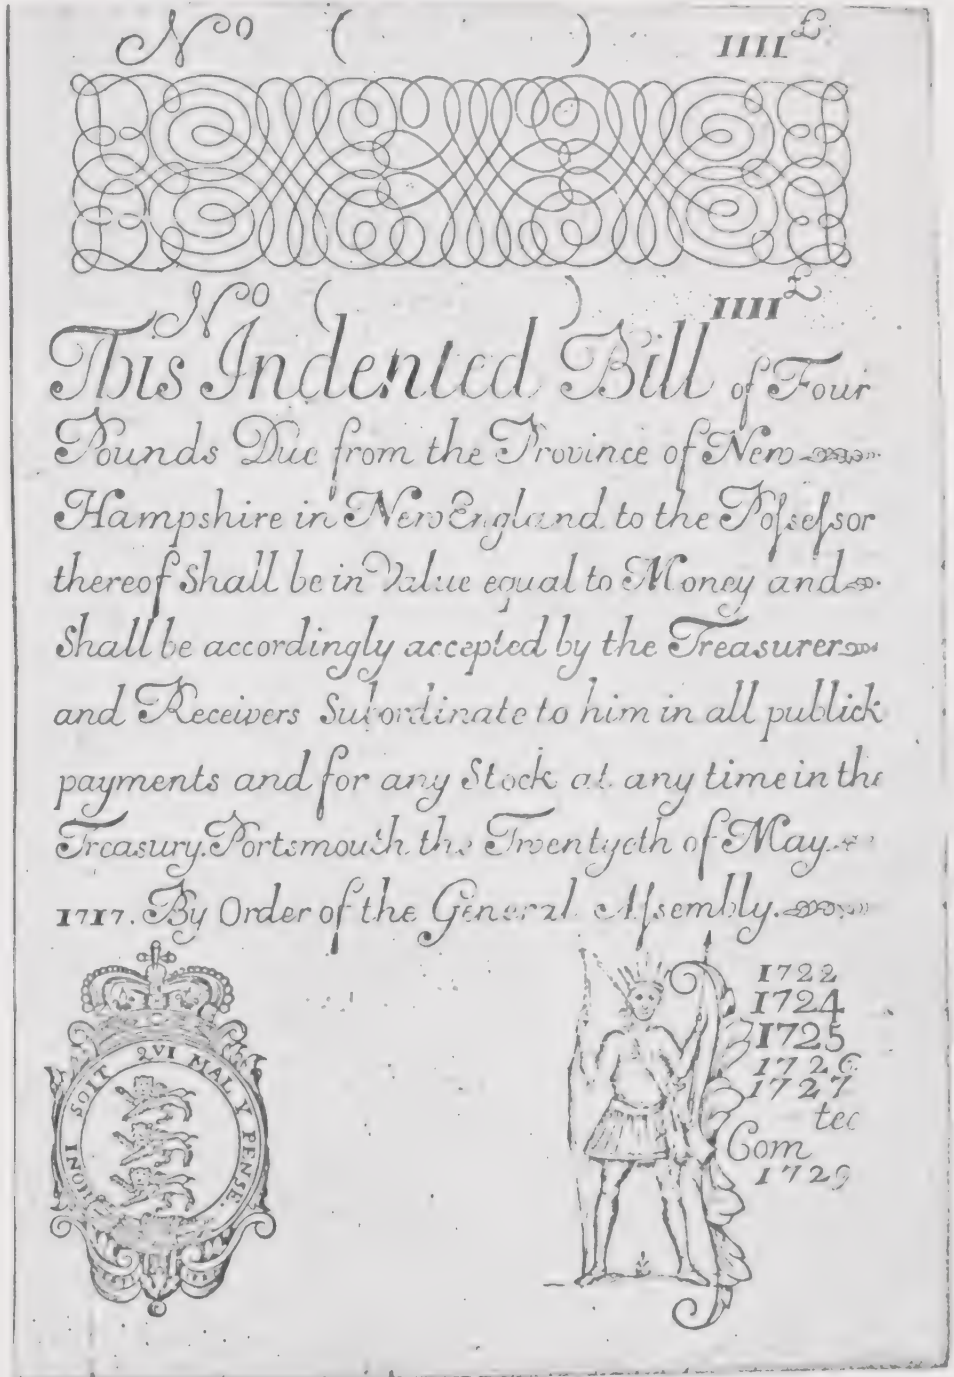 No ( ) IIII £
No ( ) IIII £
This Indented Bill of Four
Pounds Due from the Province of New
Hampshire in New England to the Poſseſsor
thereof Shall be in Value equal to Money and
Shall be accordingly accepted by the Treasurer
and Receivers Subordinate to him in all publick
payments and for any Stock at any time in the
Treasury. Portsmouth the Twentyeth of May
1717. By Order of the General Aſsembly.
HONI SOIT QVI MAL Y PENSE.
1722
1724
1725
1726
1727
tee
Com
1729